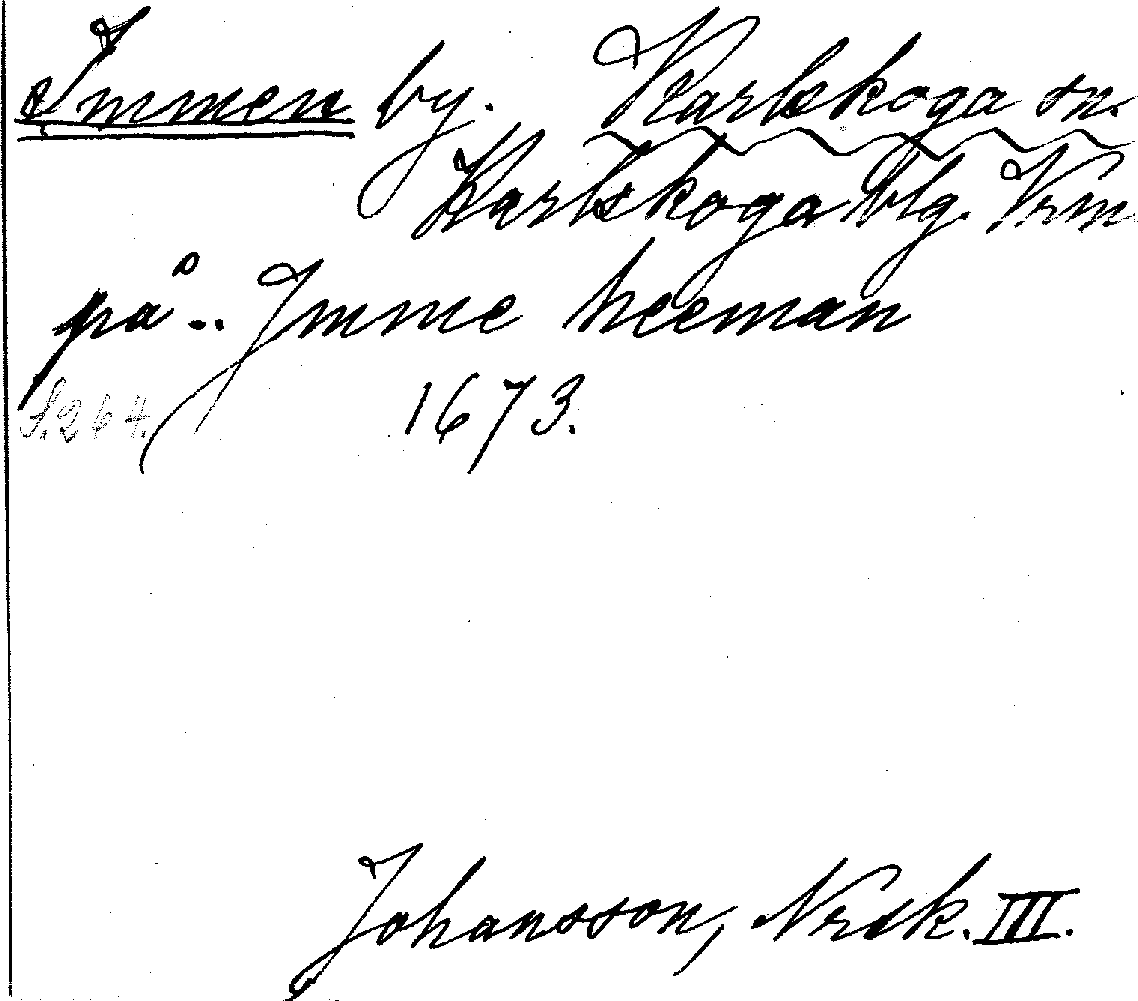 Immen by. Karlskoga sn.
Karlskoga blg. Vrm
på .. Jmme heeman
S. 264. 1673.
Johansson, Nrsk. III.